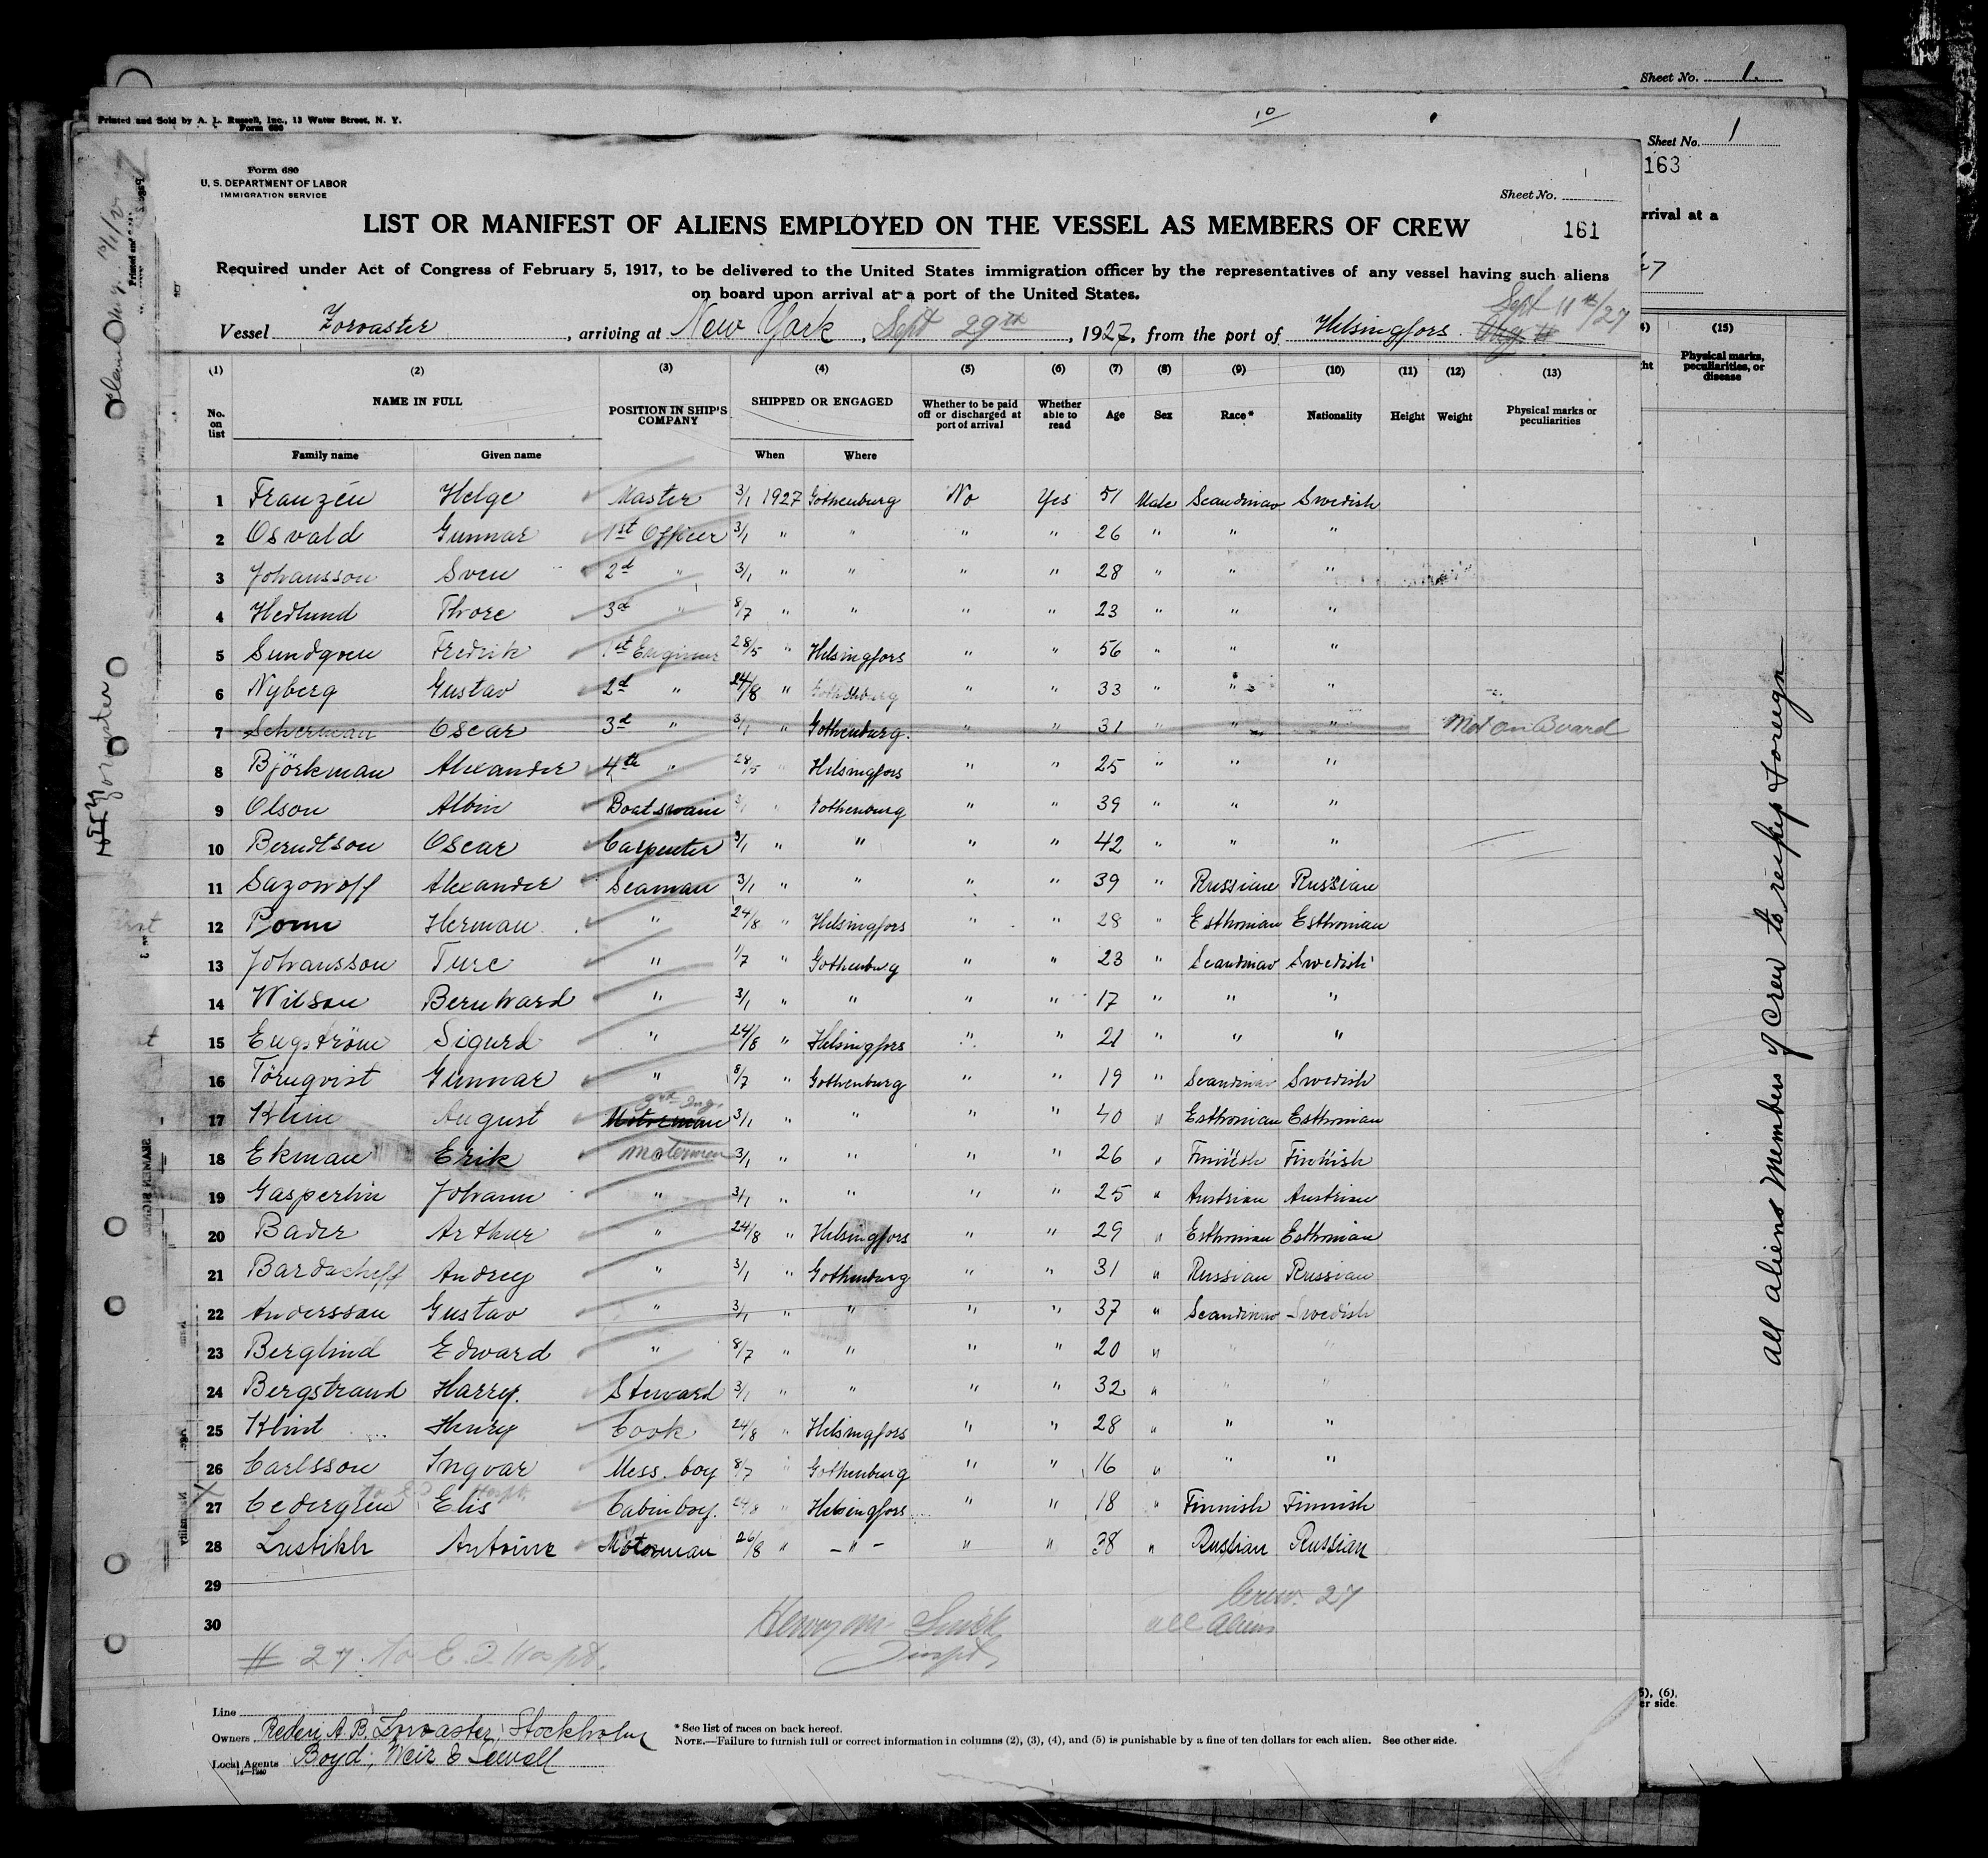 Sheet No. 1.
Printed and Sold by A. L. Russell, Inc., 13 Water Street, N. Y.
Form 680
10
Sheet No. 1
163
rrival at a
27
Form 680
U. S. DEPARTMENT OF LABOR
IMMIGRATION SERVICE
Sheet No.
LIST OR MANIFEST OF ALIENS EMPLOYED ON THE VESSEL AS MEMBERS OF CREW
161
Required under Act of Congress of February 5, 1917, to be delivered to the United States immigration officer by the representatives of any vessel having such aliens
on board upon arrival at a port of the United States.
Sept 11th/27
Vessel Zoroaster, arriving at New York, Sept 29th, 1927, from the port of Helsingfors. Aug 11
(1) (2) (3) (4) (5) (6) (7) (8) (9) (10) (11) (12) (13)
No. on list NAME IN FULL POSITION IN SHIP'S COMPANY SHIPPED OR ENGAGED Whether to be paid off or discharged at port of arrival Whether able to read Age Sex Race* Nationality Height Weight Physical marks or peculiarities
Family name Given name When Where
(15)
Physical marks, peculiarities, or disease
1 Franzén Helge Master 3/1 1927 Gothenburg No Yes 51 Male Scandinav Swedish
2 Osvald Gunnar 1st Officer 3/1 " " " " 26 " " "
3 Johansson Sven 2d " 3/1 " " " " 28 " " "
4 Hedlund Thore 3d " 8/7 " " " " 23 " " "
5 Sundqven Fredrik 1st Engineer 28/5 " Helsingfors " " 56 " " "
6 Nyberg Gustav 2d " 24/8 " Gothenburg " " 33 " " "
7 Scherman Oscar 3d " 3/1 " Gothenburg. " " 31 " " " Not on Board
8 Björkman Alexander 4th " 28/5 " Helsingfors " " 25 " " "
9 Olson Albin Boatswain 3/1 " Gothenburg " " 39 " " "
10 Berndtson Oscar Carpenter 3/1 " " " " 42 " " "
11 Sazonoff Alexander Seaman 3/1 " " " " 39 " Russian Russian
12 Romm Herman " 24/8 " Helsingfors " " 28 " Esthonian Esthonian
13 Johansson Ture " 1/7 " Gothenburg " " 23 " Scandinav Swedish
14 Wilson Bernhard " 3/1 " " " " 17 " " "
15 Engström Sigurd " 24/8 " Helsingfors " " 21 " " "
16 Törnqvist Gunnar " 8/7 " Gothenburg " " 19 " Scandinav Swedish
3rd Ing.
17 Klim August Motorman 3/1 " " " " 40 " Esthonian Esthonian
18 Ekman Erik Motorman 3/1 " " " " 26 " Finnish Finnish
19 Gasperlin Johann " 3/1 " " " " 25 " Austrian Austrian
20 Bader Arthur " 24/8 " Helsingfors " " 29 " Esthonian Esthonian
21 Bardacheff Andrey " 3/1 " Gothenburg " " 31 " Russian Russian
22 Andersson Gustav " 3/1 " " " " 37 " Scandinav Swedish
23 Berglind Edward " 8/7 " " " " 20 " " "
24 Bergstrand Harry. Steward 3/1 " " " " 32 " " "
25 Klint Henry Cook 24/8 " Helsingfors " " 28 " " "
26 Carlsson Ingvar Mess. boy 8/7 " Gothenburg " " 16 " " "
27 Cedergren Elis Cabinboy. 24/8 " Helsingfors " " 18 " Finnish Finnish
28 Lustikh Antoine Motorman 26/8 " - " - " " 38 " Russian Russian
29
30
Crew 27
all Aliens
Inspt.
# 27. to E. I. Hospt.
Line
Owners Rederi A. B. Zoroaster, Stockholm
Local Agents Boyd, Weir & Sewell
14—1240
* See list of races on back hereof.
NOTE.—Failure to furnish full or correct information in columns (2), (3), (4), and (5) is punishable by a fine of ten dollars for each alien. See other side.
5), (6).
er side.
all aliens Members of Crew to reship foreign
Zoroaster